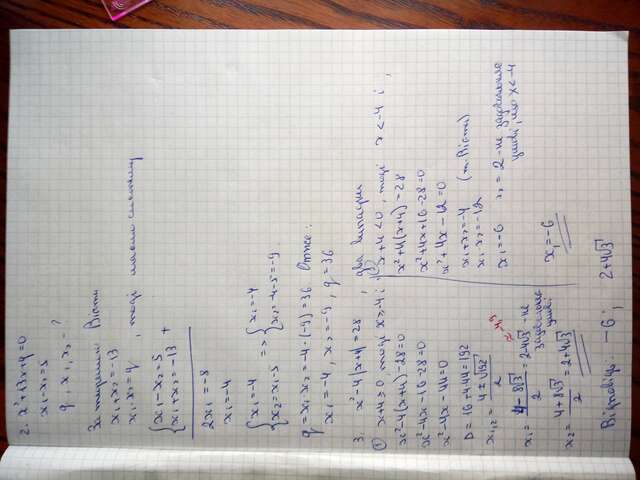 2. x²+13x+q=0
x₁-x₂=5
q, x₁, x₂ - ?
За теоремою Вієта
x₁+x₂=-13
x₁·x₂=q, тоді маємо систему
{x₁-x₂=5
{x₁+x₂=-13 +
2x₁=-8
x₁=-4
{x₁=-4
{x₂=x₁-5 => {x₁=-4
{x₂=-4-5=-9
q=x₁·x₂=-4·(-9)=36 Отже:
x₁=-4, x₂=-9, q=36
3. x²-4|x+4|=28, два випадки
① x+4≥0 тоді x≥-4 і
x²-4(x+4)-28=0
x²-4x-16-28=0
x²-4x-44=0
D=16+4·44=192
x₁,₂=4±√192/2
x₁=4-8√3/2=2-4√3 - не
задовольняє
умові
x₂=4-8√3/2=2+4√3
② x+4<0, тоді x<-4 і,
x²+4(x+4)=28
x²+4x+16-28=0
x²+4x-12=0
x₁+x₂=-4 (т. Вієта)
x₁·x₂=-12
x₁=-6 x₂=2 - не задовольняє
умові, що x<-4
x₁=-6
Відповідь: -6; 2+4√3